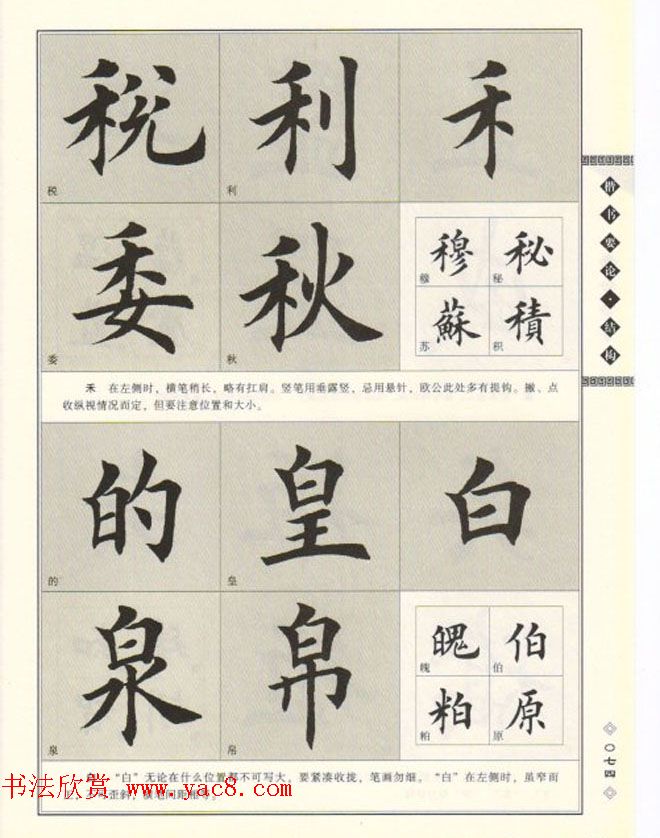 税 利 禾
税 利
委 秋
穆 秘
穆 秘
蘇 積
苏 积
委 秋
禾 在左侧时，横笔稍长，略有扛肩。竖笔用垂露竖，忌用悬针，欧公此处多有提钩。撇、点
收纵视情况而定，但要注意位置和大小。
的 皇 白
的 皇
泉 帛
魄 伯
魄 伯
粕 原
粕 原
泉 帛
“白”无论在什么位置都不可写大，要紧凑收拢，笔画勿细。“白”在左侧时，虽窄而
不可歪斜，横笔间距相等。
书法欣赏 www.yac8.com
楷书要论·结构
〇七四